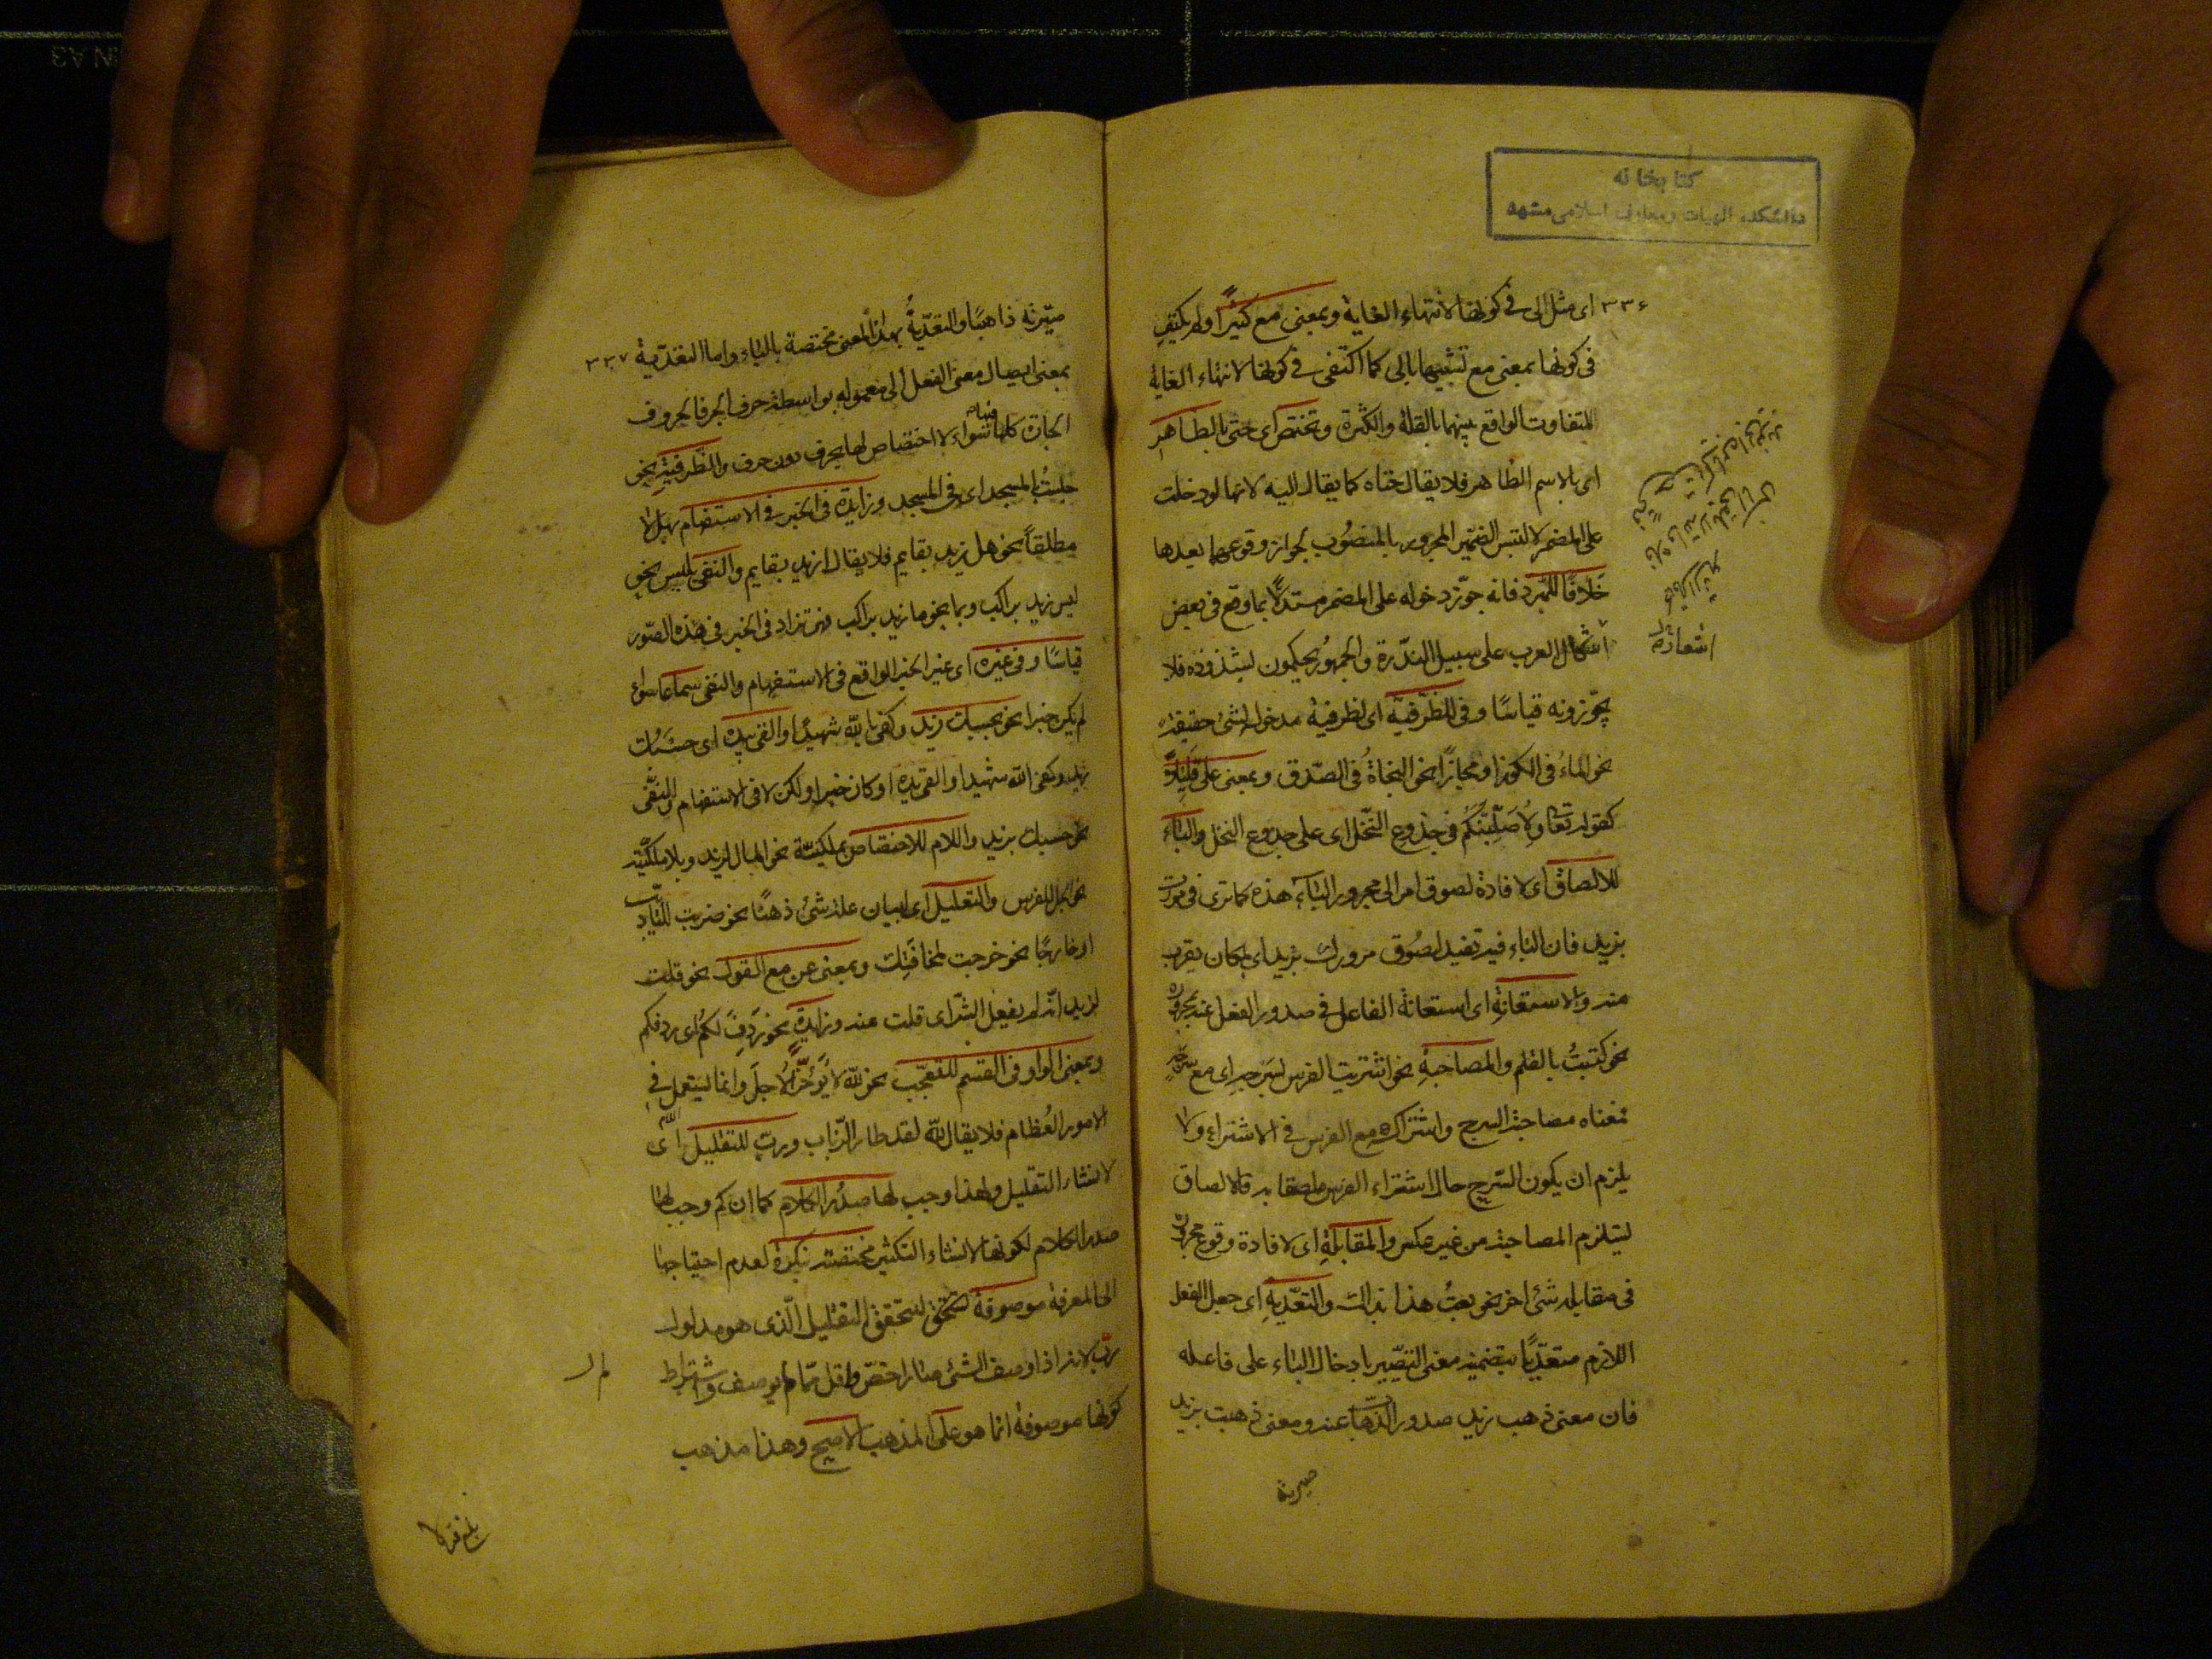 كتابخانه
دانشكده الهيات ومعارف اسلامى مشهد
٣٣٦
اى مثل الى فى كونها لانتهاء الغاية وبمعنى مع كثيرًا ولم يكتف
فى كونها بمعنى مع تشبيهها بالى كما اكتفى فى كونها لانتهاء الغاية
للتفاوت الواقع بينهما بالقلة والكثرة وتختص اى حتى بالظاهر
اى بالاسم الظاهر فلا يقال حتاه كما يقال اليه لانها لو دخلت
على المضمر لالتبس الضمير المجرور بالمنصوب لجواز وقوعهما بعدها
خلافًا للمبرد فانه جوّز دخوله على المضمر مستدلًا بما وقع فى بعض
اشعار العرب على سبيل الندرة والجمهور يحكمون بشذوذه فلا
يجوّزونه قياسًا وفى للظرفية اى لظرفية مدخولها لشئ حقيقة
نحو الماء فى الكوز او مجازًا نحو النجاة فى الصدق وبمعنى على قليلًا
كقوله تعالى ولاصلّبنّكم فى جذوع النخل اى على جذوع النخل والباء
للالصاق اى لافادة لصوق امر الى مجرور الباء هذه كما ترى فى مررت
بزيد فان الباء فيه تفيد لصوق مرورك بزيد اى بمكان يقرب
منه والاستعانة اى استعانة الفاعل فى صدور الفعل عنه بمجروره
نحو كتبت بالقلم والمصاحبة نحو اشتريت الفرس بسرجه اى مع سرجه
فمعناه مصاحبة السرج واشتراكه مع الفرس فى الاشتراء ولا
يلزم ان يكون السرج حال اشتراء الفرس ملصقا به فالالصاق
يستلزم المصاحبة من غير عكس والمقابلة اى لافادة وقوع مجروره
فى مقابلة شئ اخر نحو بعت هذا بذاك والتعدية اى جعل الفعل
اللازم متعديًا بتضمينه معنى التصيير بادخال الباء على فاعله
فان معنى ذهب زيد صدور الذهاب عنه ومعنى ذهبت بزيد
صيرته
اشعاره
٣٣٧
صيّرته ذاهبًا والتعدية بهذا المعنى مختصة بالباء واما التعدية
بمعنى ايصال معنى الفعل الى معموله بواسطة حرف الجر فالحروف
الجارة كلها فيها سواء لا اختصاص لها بحرف دون حرف والظرفية نحو
جلست بالمسجد اى فى المسجد وزايدة فى الخبر فى الاستفهام بهل لا
مطلقًا نحو هل زيد بقايم فلا يقال ازيد بقايم والنفى بليس نحو
ليس زيد براكب وبما نحو ما زيد براكب فهى تزاد فى الخبر فى هذه الصور
قياسًا وفى غيره اى غير الخبر الواقع فى الاستفهام والنفى سماعًا سواء
لم يكن خبرا نحو بحسبك زيد وكفى بالله شهيدًا والقى بيده اى حسبك
زيد وكفى الله شهيدا والقى يده او كان خبرا ولكن لا فى الاستفهام والنفى
نحو حسبك بزيد واللام للاختصاص بملكية نحو المال لزيد وبلا ملكية
نحو الجل للفرس والتعليل اى لبيان علة شئ ذهنًا نحو ضربت للتأديب
او خارجًا نحو خرجت لمخافتك وبمعنى عن مع القول نحو قلت
لزيد انه لم يفعل الشر اى قلت عنه وزايدة نحو ردف لكم اى ردفكم
وبمعنى الواو فى القسم للتعجب نحو لله لا يؤخر الاجل وانما يستعمل فى
الامور العظام فلا يقال لله لقد طار الذباب وربّ للتقليل اى
لانشاء التقليل ولهذا وجب لها صدر الكلام كما ان كم وجب لها
صدر الكلام لكونها لانشاء التكثير مختصة بنكرة لعدم احتياجها
الى المعرفة موصوفة ليتحقق التقليل الذى هو مدلول
ربّ لانه اذا وصف الشئ صار اخصّ واقل مما لم يوصف واشتراط
كونها موصوفة انما هو على المذهب الاصح وهذا مذهب